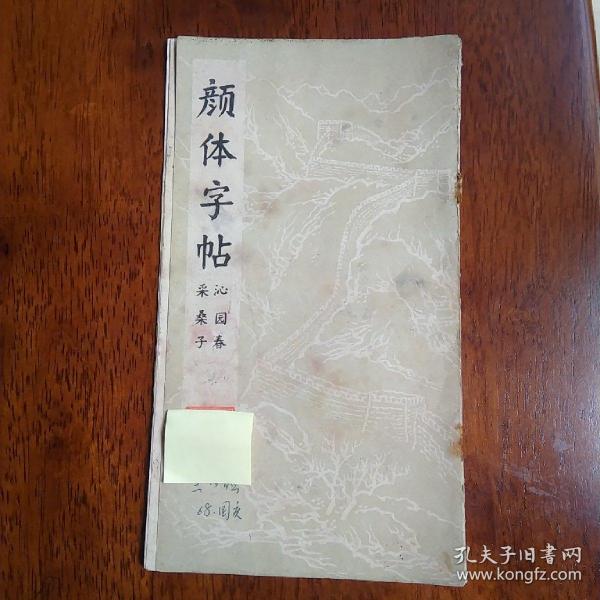 颜体字帖
沁园春
采桑子
68.国庆
孔夫子旧書网
www.kongfz.com